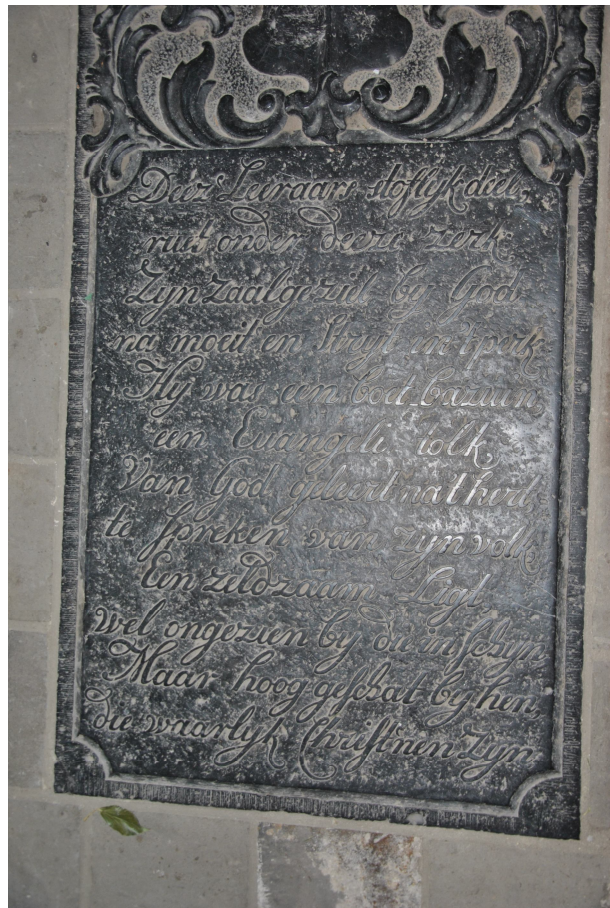 Deez' Leeraars stoflyk deel,
rust onder deeze zerk
Zyn zaalge ziel by God
na moeit en Stryt in 't perk
Hy was een boet-bazuin,
een Euangeli tolk,
Van God geleert na 't herd,
te spreken van zyn volk
Een zeldzaam Ligt,
wel ongezien by die in schyn
Maar hoog geschat by hen,
die waarlyk Christ'nen zyn